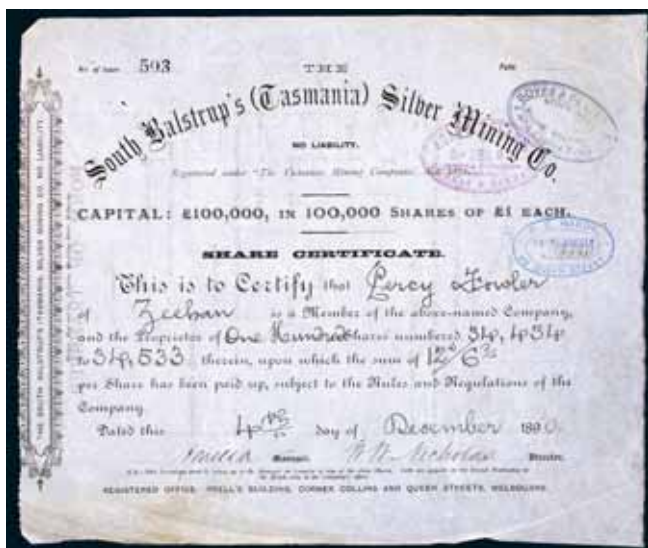 No. of Issue 593
THE
South Balstrup's (Tasmania) Silver Mining Co.
NO LIABILITY.
Registered under "The Victorian Mining Companies
CAPITAL: £100,000, IN 100,000 SHARES OF £1 EACH.
SHARE CERTIFICATE.
This is to Certify that Percy Fowler
of Zeehan is a Member of the above-named Company,
and the Proprietor of One Hundred Shares numbered 34,434
to 34,533 therein, upon which the sum of 12/6
per Share has been paid up, subject to the Rules and Regulations of the
Company.
Dated this 4th day of December 1890.
Manager. Director.
REGISTERED OFFICE: PRELL'S BUILDING, CORNER COLLINS AND QUEEN STREETS, MELBOURNE.
THE SOUTH BALSTRUP'S (TASMANIA) SILVER MINING CO. NO LIABILITY.